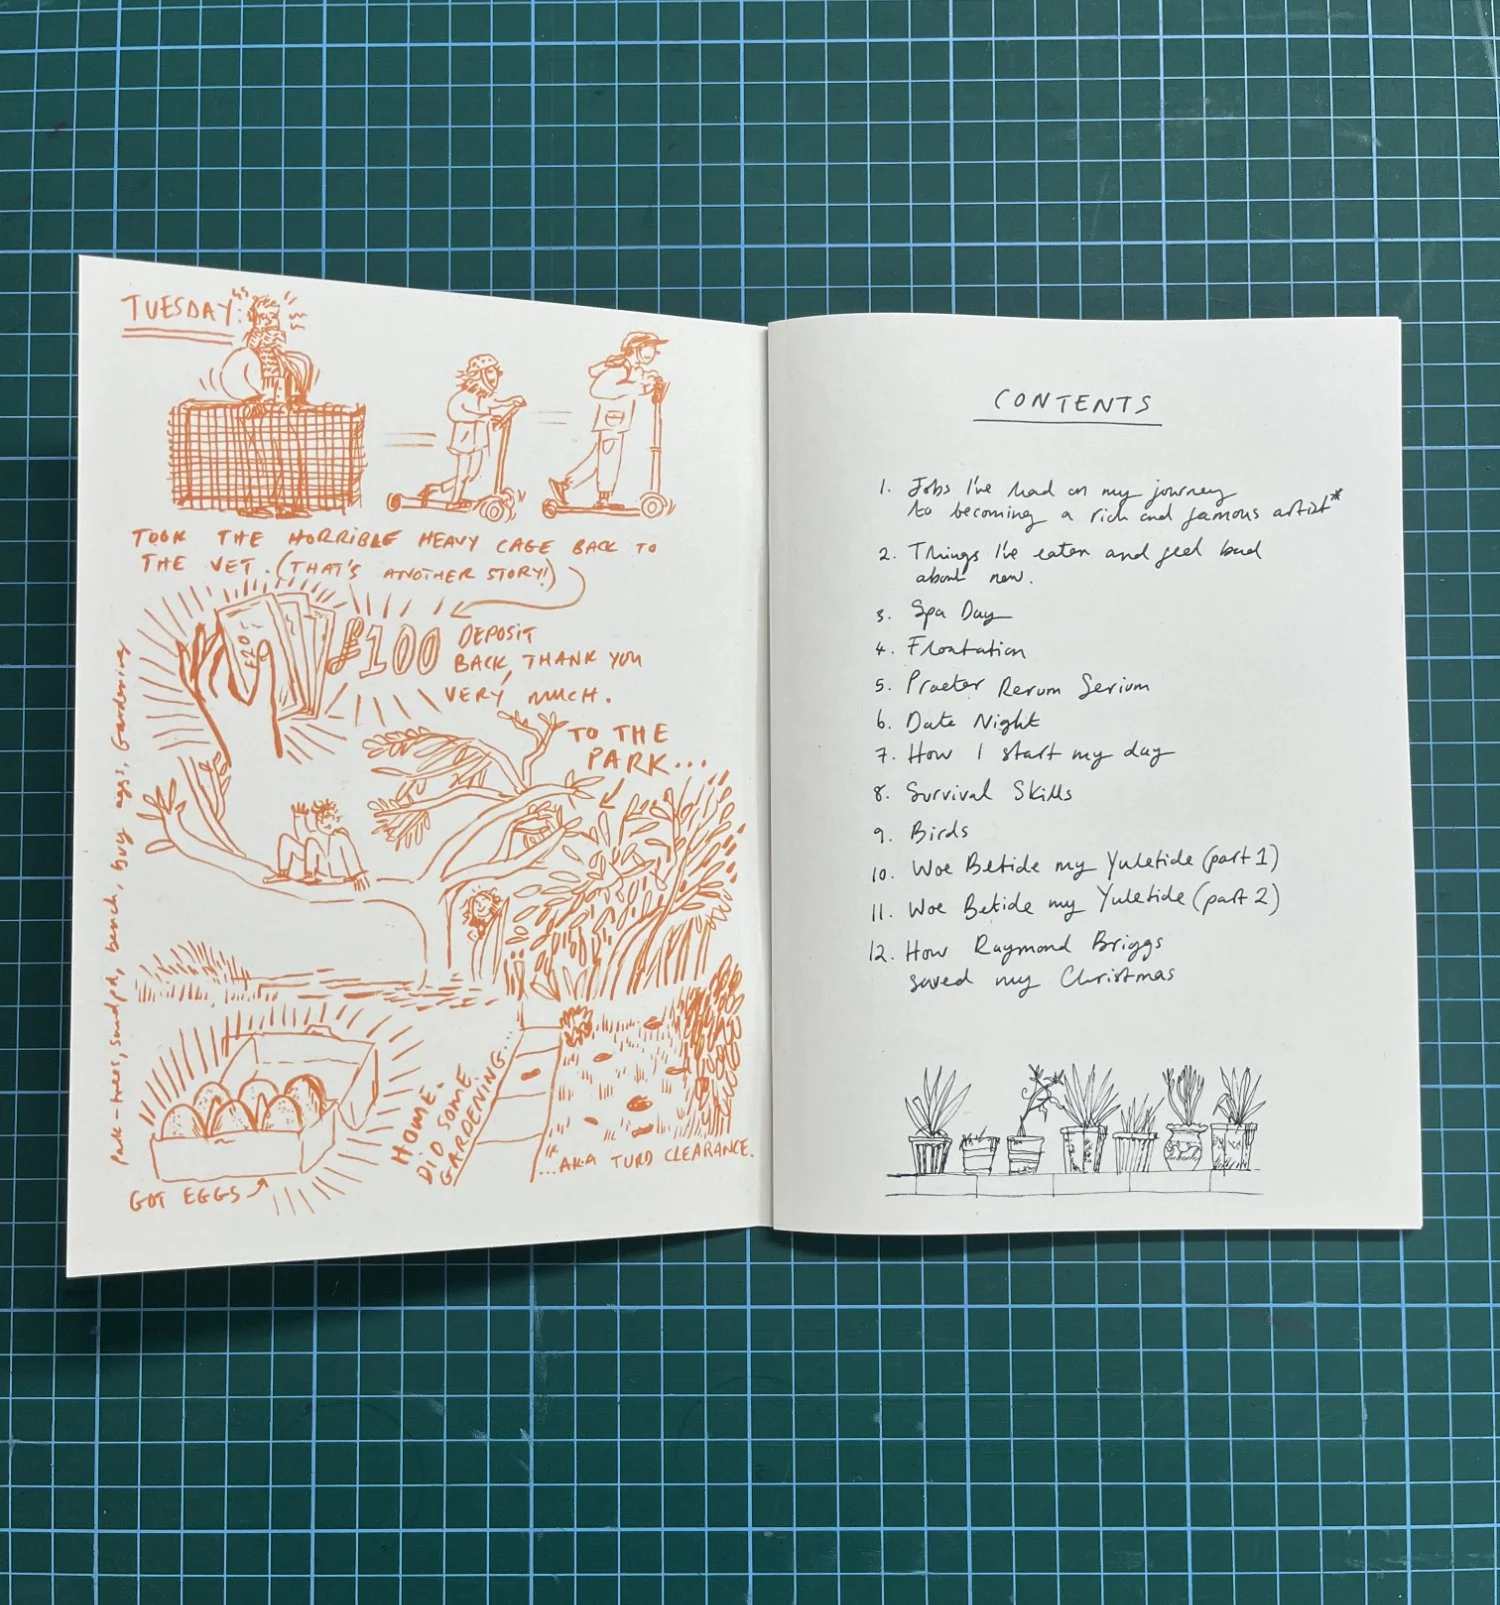 TUESDAY:
TOOK THE HORRIBLE HEAVY CAGE BACK TO
THE VET. (THAT'S ANOTHER STORY!)
£20
£100 DEPOSIT
BACK, THANK YOU
VERY MUCH.
TO THE
PARK...
Park - trees, sandpit, bench, buy eggs, Gardening
GOT EGGS
HOME.
DID SOME
GARDENING...
...AKA TURD CLEARANCE.
CONTENTS
1. Jobs I've had on my journey
to becoming a rich and famous artist*
2. Things I've eaten and feel bad
about now.
3. Spa Day
4. Floatation
5. Praeter Rerum Serium
6. Date Night
7. How I start my day
8. Survival Skills
9. Birds
10. Woe Betide my Yuletide (part 1)
11. Woe Betide my Yuletide (part 2)
12. How Raymond Briggs
saved my Christmas